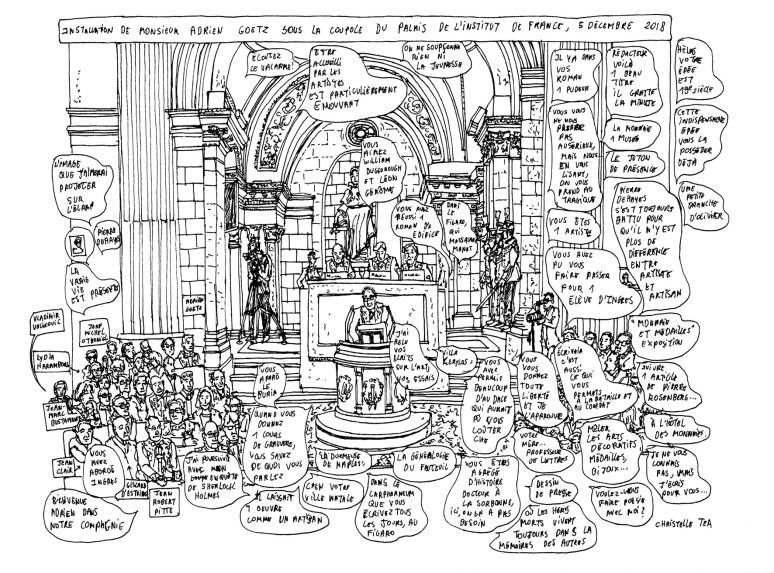 INSTALLATION DE MONSIEUR ADRIEN GOETZ SOUS LA COUPOLE DU PALAIS DE L'INSTITUT DE FRANCE, 5 DÉCEMBRE 2018
ECOUTEZ
CE VACARME!
ETRE
ACCUEILLI
PAR LES
ARTISTES
EST PARTICULIÈREMENT
EMOUVANT
ON NE SOUPÇONNE
RIEN NI
LA JEUNESSE
IL Y A DANS
VOS
ROMAN
1 PUDEUR
REDACTEUR
VOILÀ
1 BEAU
TITRE
IL GRATTE
LA MINUTE
HÉLAS
VOTRE
EPÉE
EST
19e SIÈCLE
VOUS VOUS
NE NOUS
PAS
AUSÉRIEUX,
MAIS NOUS
EN VOUS
LISANT,
ON VOUS
PREND AU
TRAGIQUE
LA MONNAIE
1 MUSÉE
LE JETON
DE PRÉSENCE
CETTE
INDISPENSABLE
EPÉE
VOUS LA
POSSÉDER
DÉJÀ
UNE
PETITE
BRANCHE
D'OLIVIER
L'IMAGE
QUE J'AIMERAI
PROJETER
SUR
L'ÉCRAN
PIERRE
DEHAYE
LA
VRAIE
VIE
EST PRÉSENTE
VOUS
AIMEZ
WILLIAM
BUGOROUGH
ET LÉON
GÉRÔME
VOUS AVEZ
RÉUSSI 1
ROMAN D'A
EDIFICE
DANS
LE
FIGARO,
QUI
MASSACRA
MANET
VOUS ÊTES
1 ARTISTE
PIERRE
DEHAYES
S'EST TOUJOURS
BATTU POUR
QU'IL N'Y EST
PLUS DE
DIFFÉRENCE
ENTRE
ARTISTE
ET
ARTISAN
VOUS AVEZ
PU VOUS
FAIRE PASSER
POUR 1
ELÈVE D'INGRES
VLADIMIR
VELICKOVIC
JEAN
MICHEL
OTHONIEL
ADRIEN
GOETZ
LYDIA
HARAMBOURG
JEAN-MARC
BUSTAMANTE
JEAN
CLAIR
VOUS
AVEZ
ABORDÉ
INGRES
GISCARD
D'ESTAING
JEAN
ROBERT
PITTE
BIENVENUE
ADRIEN DANS
NOTRE COMPAGNIE
J'AI POURSUIVI
AVEC MON
COMPÈRE ENQUÊTE
DE SHERLOCK
HOLMES
VOUS
A PARO
LE
BURIN
QUAND VOUS
DONNEZ
1 COURS
DE GRAVURE,
VOUS SAVEZ
DE QUOI VOUS
PARLEZ
IL LAISAIT
1 OEUVRE
COMME UN ARTISAN
LA DORMEUSE
DE NAPLES
CAEN VOTRE
VILLE NATALE
LA GÉNÉALOGIE
DU FAUTEUIL
DANS LE
CAPHARNAÜM
QUE VOUS
ECRIVEZ TOUS
LES JOURS, AU
FIGARO
J'AI
RELU
VOS
ECRITS
SUR L'ART,
VOS ESSAIS
VILLA
KERYLOS
VOUS
AVEZ
PERMIS
BEAUCOUP
D'AUDACE
QUI AURAIT
PÛ VOUS
COÛTER
CHER
VOUS ÊTES
AGRÉGÉ
D'HISTOIRE
DOCTEUR À
LA SORBONNE,
ICI, ON EN A PAS
BESOIN
VOUS
VOUS
DONNEZ
TOUTE
LIBERTÉ
ET JE
L'APPROUVE
VOTRE
MÈRE
PROFESSEUR
DE LETTRES
DESSIN
DE PRESSE
OÙ LES HÉROS
MORTS VIVENT
TOUJOURS DANS LA
MÉMOIRES DES AUTRES
ÉCRIVAIN
C'EST
AUSSI
CE QUI
VOUS
PERMETS
À LA BATAILLE ET
AU COMBAT
MÊLER
LES ARTS
DÉCORATIFS
MÉDAILLES,
BIJOUX...
VOULEZ-VOUS
FAIRE POÉSIE
AVEC MOI?
"MONNAIE
ET MÉDAILLES"
EXPOSITION
SUIVRE
1 ARTICLE
DE PIERRE
ROSENBERG...
À L'HÔTEL
DES
MONNAIES
JE NE
VOUS
CONNAIS
PAS, MAIS
J'ÉCRIS
POUR VOUS...
CHRISTELLE TÉA